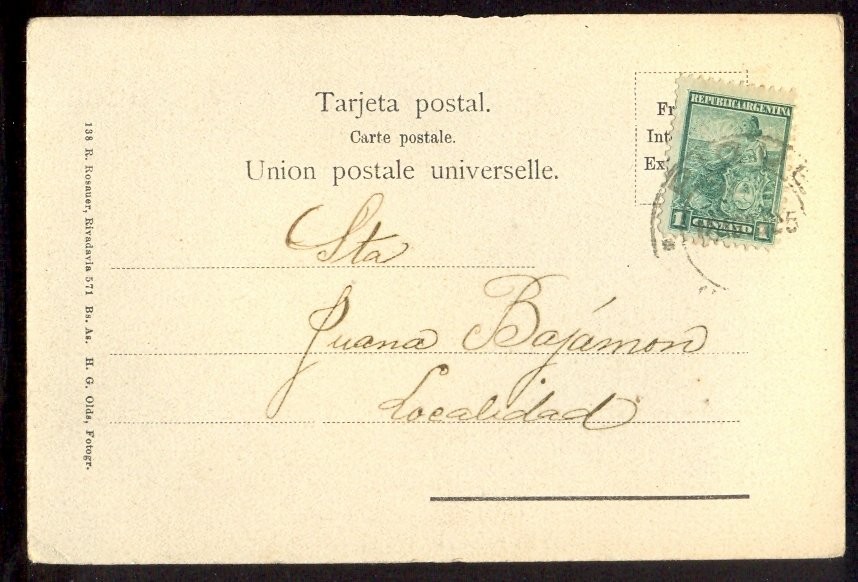 Tarjeta postal.
Carte postale.
Union postale universelle.
Fr
Int
Ex
REPUBLICA ARGENTINA
1 CENTAVO 1
Sta
Juana Bajámon
Localidad
138 R. Rosauer, Rivadavia 571 Bs. As. H. G. Olds, Fotogr.